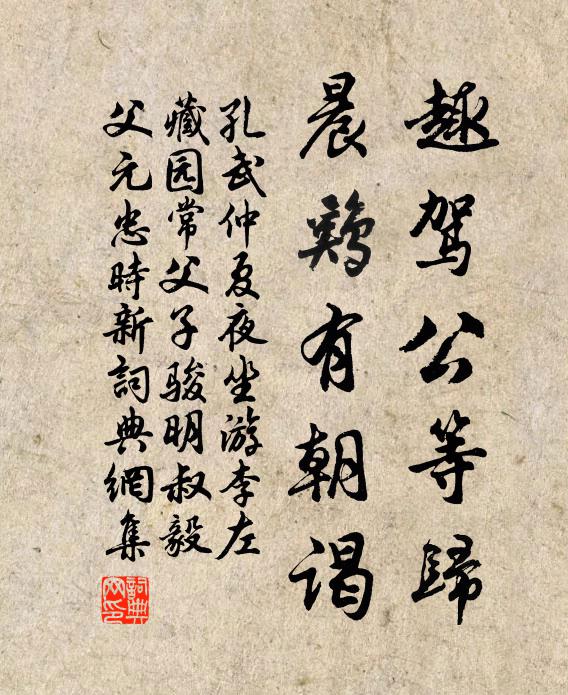 趣驾公等歸
晨鷄有朝谒
孔武仲夏夜坐游李左
藏园常父子骏明叔毅
父元忠時新詞典網集
詞典
网印